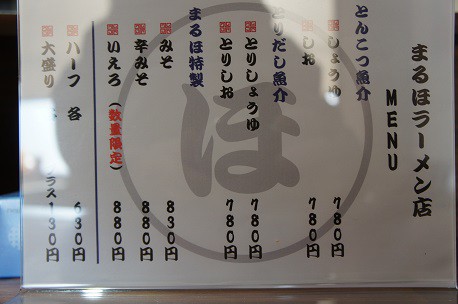 まるほラーメン店
MENU
とんこつ魚介
しょうゆ 780円
しお 780円
とりだし魚介
とりしょうゆ 780円
とりしお 780円
まるほ特製
みそ 830円
辛みそ 880円
いえろ(数量限定) 880円
ハーフ 各 630円
大盛り プラス130円
ほ